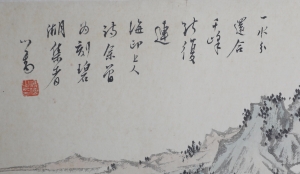 一水分
還合
千峰
斷復
連
海印上人
詩余曾
為刻碧
湖集者
心畬